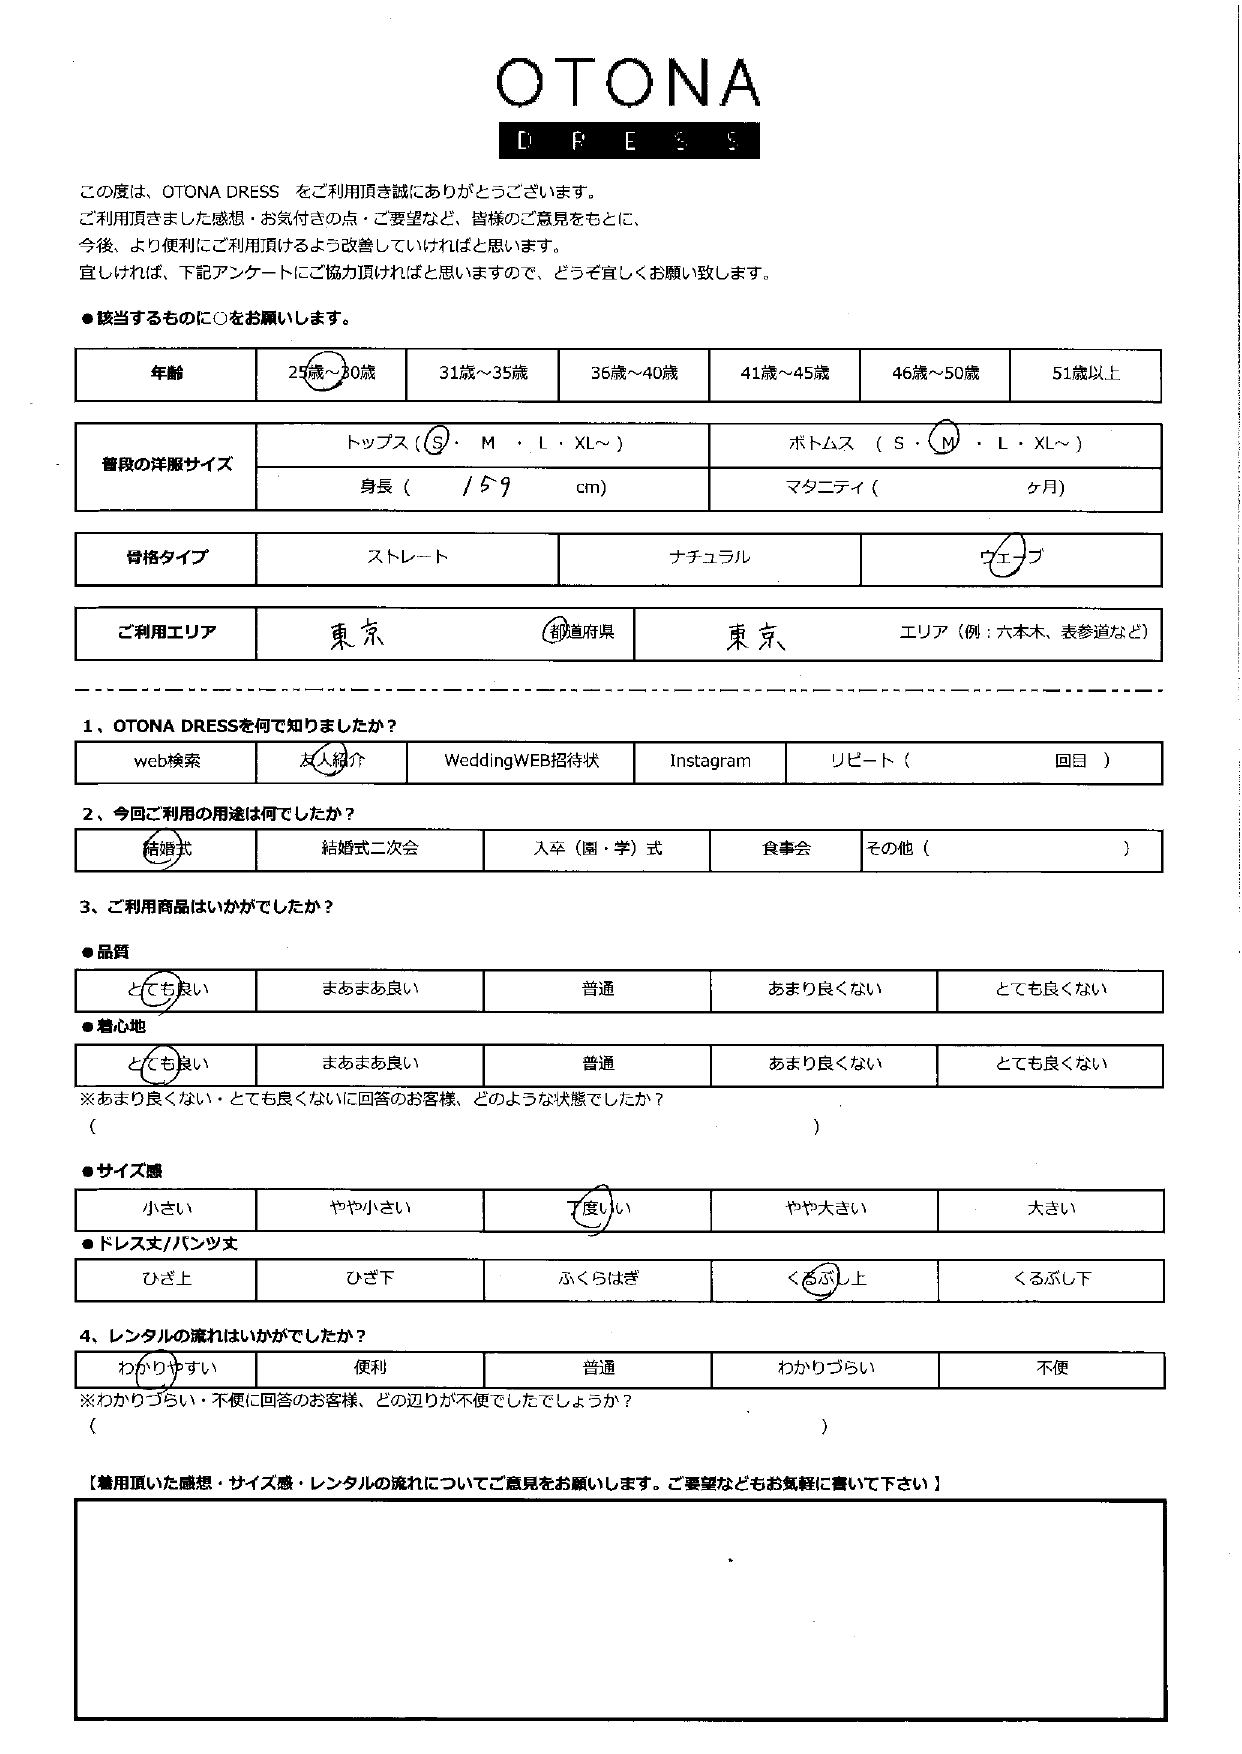 OTONA
DRESS
この度は、OTONA DRESS　をご利用頂き誠にありがとうございます。
ご利用頂きました感想・お気付きの点・ご要望など、皆様のご意見をもとに、
今後、より便利にご利用頂けるよう改善していければと思います。
宜しければ、下記アンケートにご協力頂ければと思いますので、どうぞ宜しくお願い致します。
●該当するものに○をお願いします。
年齢 25歳～30歳 31歳～35歳 36歳～40歳 41歳～45歳 46歳～50歳 51歳以上
普段の洋服サイズ トップス ( S ・ M ・ L ・ XL～ ) ボトムス ( S ・ M ・ L ・ XL～ )
身長 ( 159 cm) マタニティ ( ヶ月)
骨格タイプ ストレート ナチュラル ウェーブ
ご利用エリア 東京 都道府県 東京 エリア（例：六本木、表参道など）
1、OTONA DRESSを何で知りましたか？
web検索 友人紹介 WeddingWEB招待状 Instagram リピート（ 回目 ）
2、今回ご利用の用途は何でしたか？
結婚式 結婚式二次会 入卒（園・学）式 食事会 その他（ ）
3、ご利用商品はいかがでしたか？
●品質
とても良い まあまあ良い 普通 あまり良くない とても良くない
●着心地
とても良い まあまあ良い 普通 あまり良くない とても良くない
※あまり良くない・とても良くないに回答のお客様、どのような状態でしたか？
（ ）
●サイズ感
小さい やや小さい 丁度いい やや大きい 大きい
●ドレス丈/パンツ丈
ひざ上 ひざ下 ふくらはぎ くるぶし上 くるぶし下
4、レンタルの流れはいかがでしたか？
わかりやすい 便利 普通 わかりづらい 不便
※わかりづらい・不便に回答のお客様、どの辺りが不便でしたでしょうか？
（ ）
【着用頂いた感想・サイズ感・レンタルの流れについてご意見をお願いします。ご要望などもお気軽に書いて下さい】